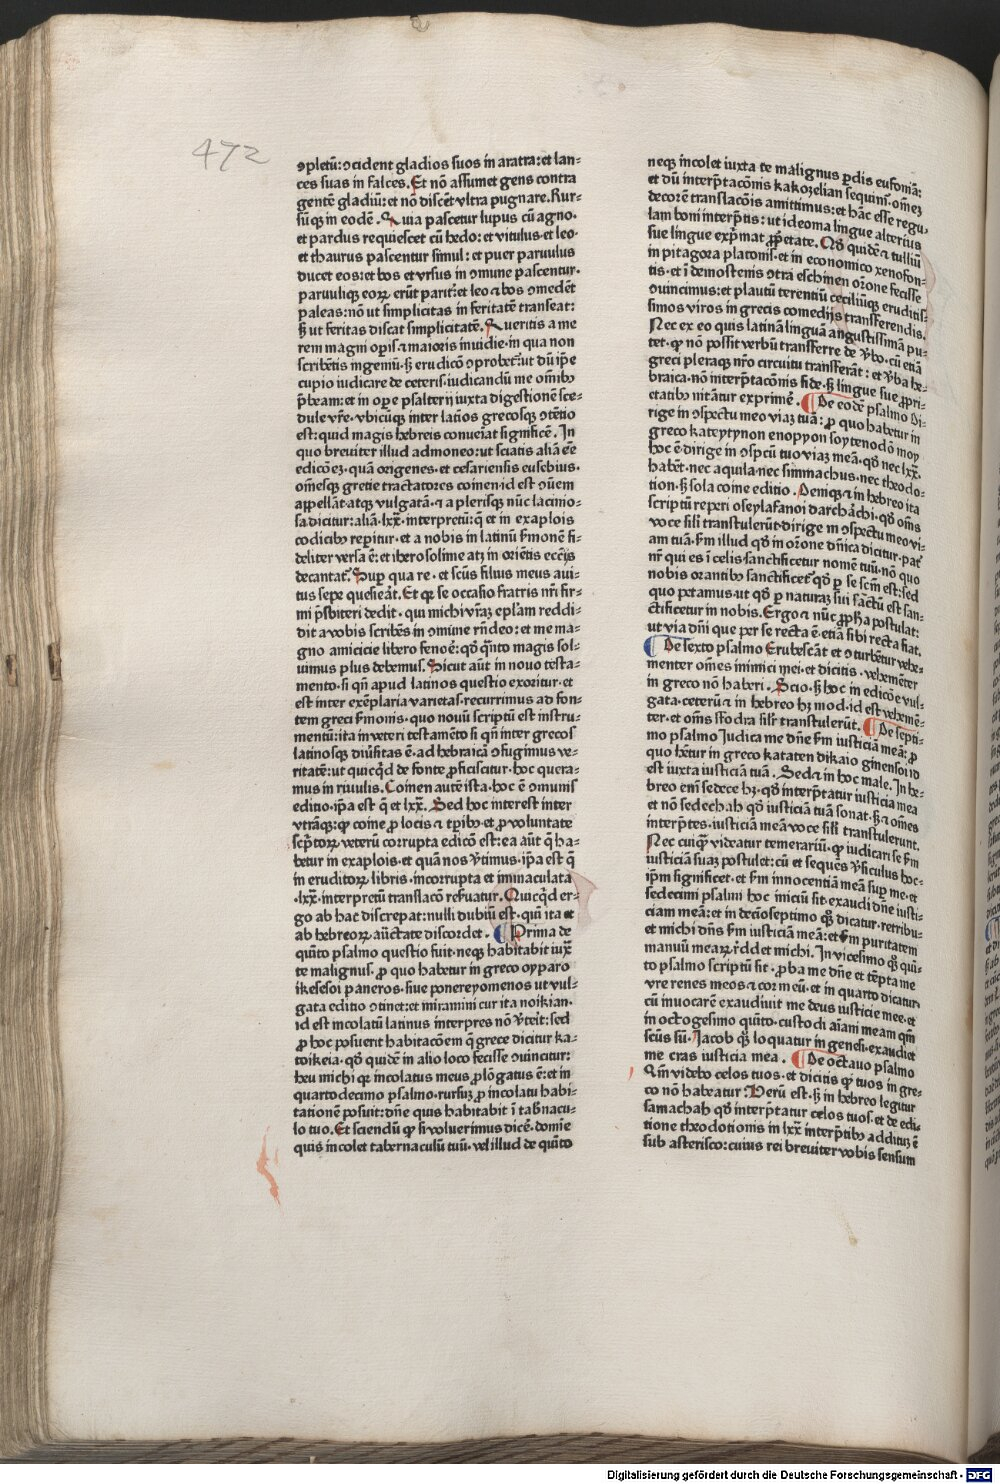 472
ꝯpletū: ꝯcident gladios suos in aratra: et lan⸗
ces suas in falces. Et nō assumet gens contra
gentē gladiū: et nō discēt vltra pugnare. Rur⸗
sūqꝫ in eodē. Quia pascetur lupus cū agno.
et pardus requiescet cū hedo: et vitulus ⁊ leo.
et thaurus pascentur simul: et puer paruulus
ducet eos: et bos et vrsus in ꝯmune pascentur.
paruuliqꝫ eoꝝ erūt parit᷑: et leo ⁊ bos ꝯmedēt
paleas: nō ut simplicitas in feritatē transeat:
ꝫ ut feritas discat simplicitatē. Queritis a me
rem magni oꝑis ⁊ maioris inuidie. in qua non
scribētis ingeniū. ꝫ erudicō ꝯprobet᷑: ut dū ip̄e
cupio iudicare de ceteris. iudicandū me om̄ibꝰ
p̄beam: et in oꝑe psalterij iuxta digestionē sce⸗
dule vr̄e. vbicūqꝫ inter latīos grecosqꝫ ꝯtētio
est: quid magis hebreis conueiat significē. In
quo breuiter illud admoneo: ut sciatis aliā eē
edicōeꝫ. quā origenes. et cesariensis eusebius.
om̄esqꝫ gretie tractatores coinen id est ꝯūem
appellāt: atqꝫ vulgatā. ⁊ a plerisqꝫ nūc lacinio⸗
sa dicitur: aliā .lxx. interpretū: q̄ et in exaplois
codicibꝰ reꝑitur. et a nobis in latinū ẜmonē fi⸗
deliter versa ē: et iherosolime atqꝫ in oriētis ecc̄ijs
decantat᷑. Suꝑ qua re. et scūs filius meus aui⸗
tus sepe quesierāt. Et qꝛ se occasio fratris nr̄i fir⸗
mi p̄sbiteri dedit. qui michi vr̄aꝫ ep̄lam reddi⸗
dit a vobis scribēs in ꝯmune rn̄deo: et me ma⸗
gno amicicie libero fenoē: qd̓ q̄nto magis sol⸗
uimus plus debemus. Sicut aūt in nouo testa⸗
mento. si qn̄ apud latinos questio exoritur. et
est inter exēplaria varietas. recurrimus ad fon⸗
tem greci ẜmonis. quo nouū scriptū est instru⸗
mentū: ita in veteri testamēto si qn̄ inter grecos
latinosqꝫ diuẜitas ē. ad hebraicā ꝯfugimus ve⸗
ritatē: ut quicqͥd de fonte ꝓficiscitur. hoc quera⸗
mus in riuulis. Coinen autē ista. hoc ē ꝯmunis
editio. ip̄a est q̄ et lxx. Sed hoc interest inter
vtrāqꝫ: qꝛ coine ꝓ locis ⁊ tꝑibꝰ. et ꝓ voluntate
scp̄toꝝ veterū corrupta edicō est: ea aūt q̄ ha⸗
betur in exaplois. et quā nos v̓timus. ip̄a est q̄
in eruditoꝝ libris. incorrupta et immaculata
.lxx. interpretū translacō reẜuatur. Quicqͥd er⸗
go ab hac discrepat: nulli dubiū est. quī ita et
ab hebreoꝝ auctate discordet. ¶ Prima de
quīto psalmo questio fuit. neqꝫ habitabit iuxͣ
te malignus. pro quo habetur in greco oyparo
ikesesoi paneros. siue ponereyomenos ut vul⸗
gata editio ꝯtinet: et miramini cur ita noikian.
id est incolatū latinus interpres nō v̓teit: sed
ꝓ hoc posuerit habitacōem q̄ grece dicitur ka⸗
toikeia. qd̓ quidē in alio loco fecisse ꝯuincitur:
heu michi qꝛ incolatus meus ꝓlōgatus ē: et in
quartodecimo psalmo. rursuꝫ ꝓ incolatu habi⸗
tationē posuit: dn̄e quis habitabit ī tab̓nacu⸗
lo tuo. Et sciendū qꝛ si voluerimus dicē. domīe
quis incolet tabernaculū tuū. vel illud de quīto
neqꝫ incolet iuxta te malignus ꝑdis eufoniā:
et dū interp̄tacōnis kakozelian sequimur. om̄eꝫ
decorē translacōis amittimus: et hāc esse regu⸗
lam boni interp̄tis: ut ideoma lingue alterius
sue lingue exp̄mat ꝓp̄etate. Qd̓ quidē ⁊ tulliū
in pitagora platonis. et in economico xenofon⸗
tis. et ī demostenis ꝯtra eschinen or̄one fecisse
ꝯuincimus: et plautū terentiū ceciliūqꝫ eruditis⸗
simos viros in grecis comedijs transferendis.
Nec ex eo quis latinā linguā angustissimā pu⸗
tet. qꝛ nō possit verbū transferre de v̓bo. cū etiā
greci pleraqꝫ nr̄o circuitu transferāt: et v̓ba he⸗
braica. nō interp̄tacōnis fide. ꝫ lingue sue ꝓpri⸗
etatibꝰ nitātur exprimē. ¶ De eodē psalmo Di⸗
rige in ꝯspectu meo viaꝫ tuā: ꝓ quo habetur in
greco kateytynon enopyon soy tenodō moy
hoc ē dirige in ꝯspcū tuo viaꝫ meā. qd̓ nec lxx.
habēt. nec aquila. nec simmachus. nec theodo⸗
tion. ꝫ sola coine editio. Deniqꝫ ⁊ in hebreo ita
scriptū reperi oseylafanoi darchachi. qd̓ om̄s
voce sil̓i transtulerūt. dirige in ꝯspectu meo vi⸗
am tuā. ẜm illud qd̓ in or̄one dn̄ica dicitur. pat᷑
nr̄ qui es ī celis sanctificetur nomē tuū. nō quo
nobis orantibꝰ sanctificet᷑ qd̓ ꝑ se scm̄ est: sed
quo petamus. ut qd̓ ꝑ naturaꝫ sui sactū est san⸗
ctificetur in nobis. Ergo ⁊ nūc ꝓpha postulat:
ut via dn̄i que per se recta ē etiā sibi recta fiat.
¶ De sexto psalmo Erubescāt et ꝯturbētur vehe⸗
menter om̄es inimici mei. et dicitis. vehemēter
in greco nō haberi. Scio. ꝫ hoc in edicōe vul⸗
gata. ceterū ⁊ in hebreo hꝫ mod. id est vehemē⸗
ter. et om̄s sfodra sil̓r transtulerūt. ¶ De septi⸗
mo psalmo Judica me dn̄e ẜm iusticiā meā: ꝓ
quo hētur in greco kataten dikaio ginensoi id
est iuxta iusticiā tuā. Sed ⁊ in hoc male. In he⸗
breo eni sedece hꝫ. qd̓ interp̄tatur iusticia mea
et nō sedechah qd̓ iusticiā tuā sonat. ꝫ ⁊ om̄es
interp̄tes. iusticiā meā voce sil̓i transtulerunt.
Nec cuiqꝫ videatur temerariū. qꝛ iudicari se ẜm
iusticiā suaꝫ postulet: cū et sequēs v̓siculus hoc
ip̄m significet. et ẜm innocentiā meā suꝑ me. et
sedecimi psalmi hoc iniciū sit. exaudi dn̄e iusti⸗
ciam meā: et in decīoseptimo qꝫ dicatur. retribu⸗
et michi dn̄s ẜm iusticiā meā: et ẜm puritatem
manuū meaꝝ r̄ddet michi. In vicesimo qꝫ quī⸗
to psalmo scriptū sit. ꝓba me dn̄e et tēpta me
vre renes meos ⁊ cor meū. et in quarto dicatur
cū inuocarē exaudiuit me deus iusticie mee. et
in octogesimo quīto. custodi aīam meam qm̄
scūs sū. Jacob qꝫ loquatur in genesi. exaudiet
me cras iusticia mea. ¶ De octauo psalmo
Qm̄ videbo celos tuos. et dicitis qꝛ tuos in gre⸗
co nō habeatur. Verū est. ꝫ in hebreo legitur
samachah qd̓ interp̄tatur celos tuos. et de edi⸗
tione theodotionis in lxx interp̄tibꝰ additus ē
sub asterisco: cuius rei breuiter vobis sensum
Digitalisierung gefördert durch die Deutsche Forschungsgemeinschaft - DFG